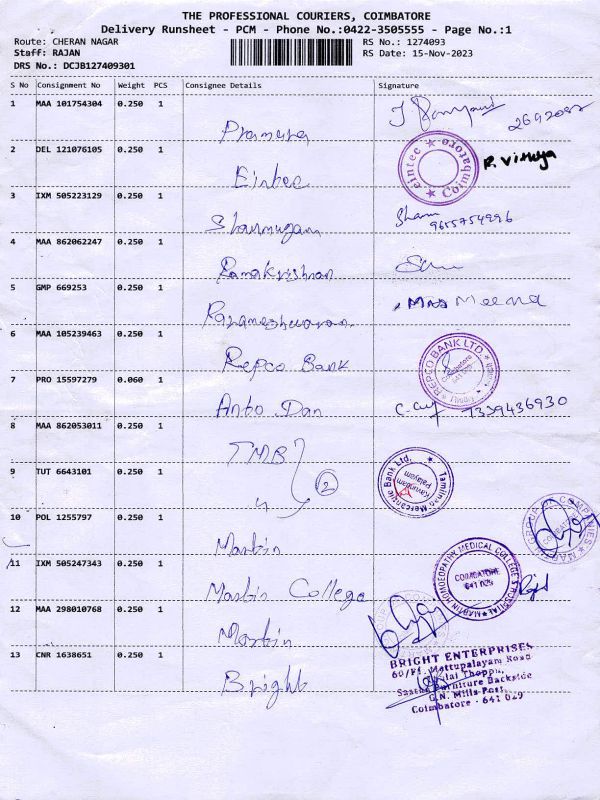 THE PROFESSIONAL COURIERS, COIMBATORE
Delivery Runsheet - PCM - Phone No.:0422-3505555 - Page No.:1
Route: CHERAN NAGAR RS No.: 1274093
Staff: RAJAN RS Date: 15-Nov-2023
DRS No.: DCJB127409301
S No Consignment No Weight PCS Consignee Details Signature
1 MAA 101754304 0.250 1
2 DEL 121076105 0.250 1
eintec Coimbatore
Eintec
3 IXM 505223129 0.250 1
Sham
Shanmugam 9655754996
4 MAA 862062247 0.250 1
Ramakrishnan
5 GMP 669253 0.250 1
Mrs Meena
Parameshwaran
6 MAA 105239463 0.250 1
REPCO BANK LTD
Repco Bank
7 PRO 15597279 0.060 1
Anto Dan 7339436930
8 MAA 862053011 0.250 1
TMB
Tamilnad Mercantile Bank Ltd.
9 TUT 6643101 0.250 1
2
10 POL 1255797 0.250 1
Martin
11 IXM 505247343 0.250 1
MARTIN HOMOEOPATHY MEDICAL COLLEGE & HOSPITAL
COIMBATORE
641 029
Martin College
12 MAA 298010768 0.250 1
Martin
13 CNR 1638651 0.250 1
Bright
BRIGHT ENTERPRISES
60/F1, Mettupalayam Road
Thoppu,
Furniture Backside
G.N. Mills Post,
Coimbatore - 641 029